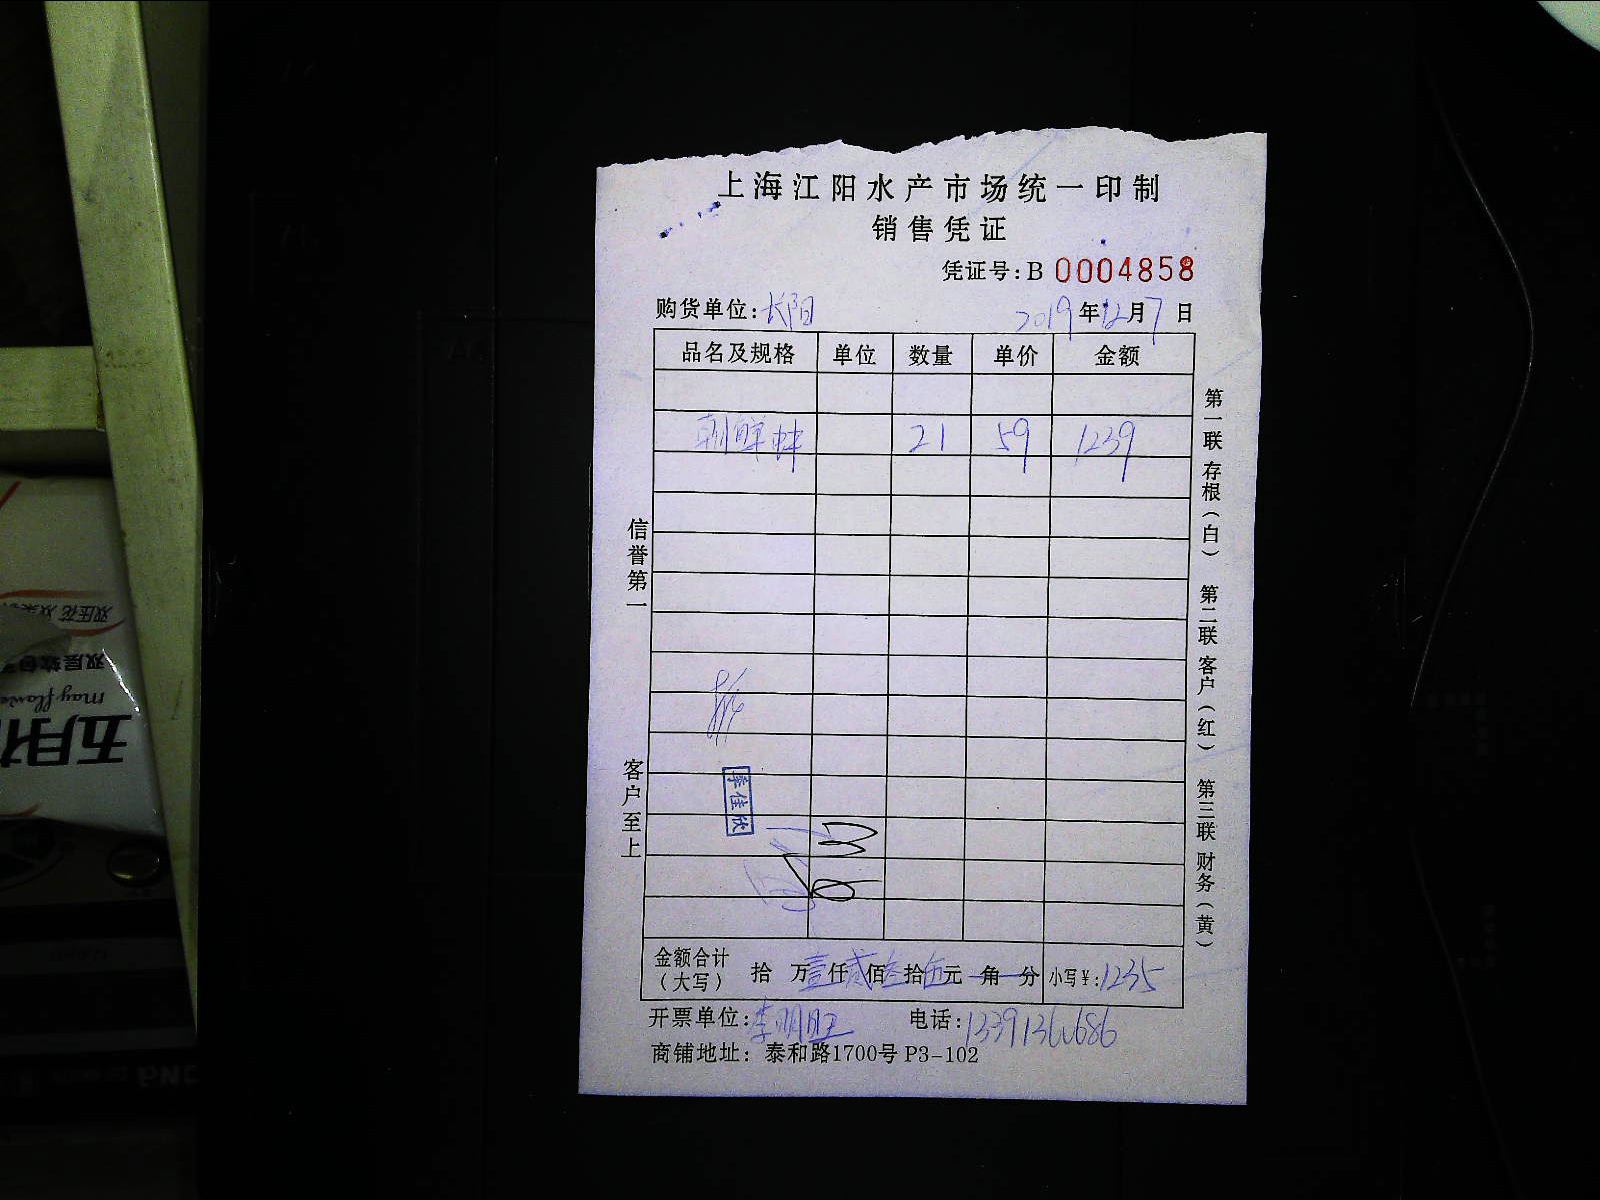 上海江阳水产市场统一印制
销售凭证
凭证号:B 0004858
购货单位:长阳 2019年12月7日
品名及规格 单位 数量 单价 金额
朝鲜蚌 21 59 1239
李佳欣
金额合计(大写) 拾 万壹仟贰佰叁拾伍元 角 分 小写¥:1235
开票单位:李明旺 电话:
商铺地址: 泰和路1700号 P3-102
信誉第一 客户至上
第一联 存根(白) 第二联 客户(红) 第三联 财务(黄)
双层软包
mayflower
五月花